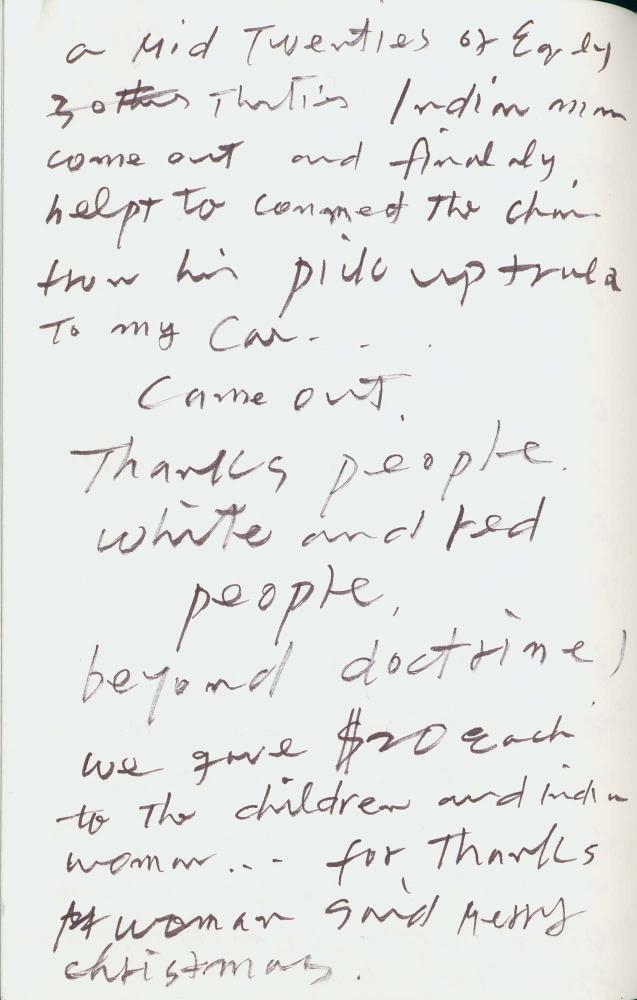 a Mid Twenties or Eqrly
Thirties Indian man
come out and finally
helpt to connect the chain
from his pick up truck
To my Car...
Came out.
Thanks people.
white and red
people,
beyond doctrine,
we gave $20 each
to The children and Indian
woman... for Thanks
woman said Merry
christmas.